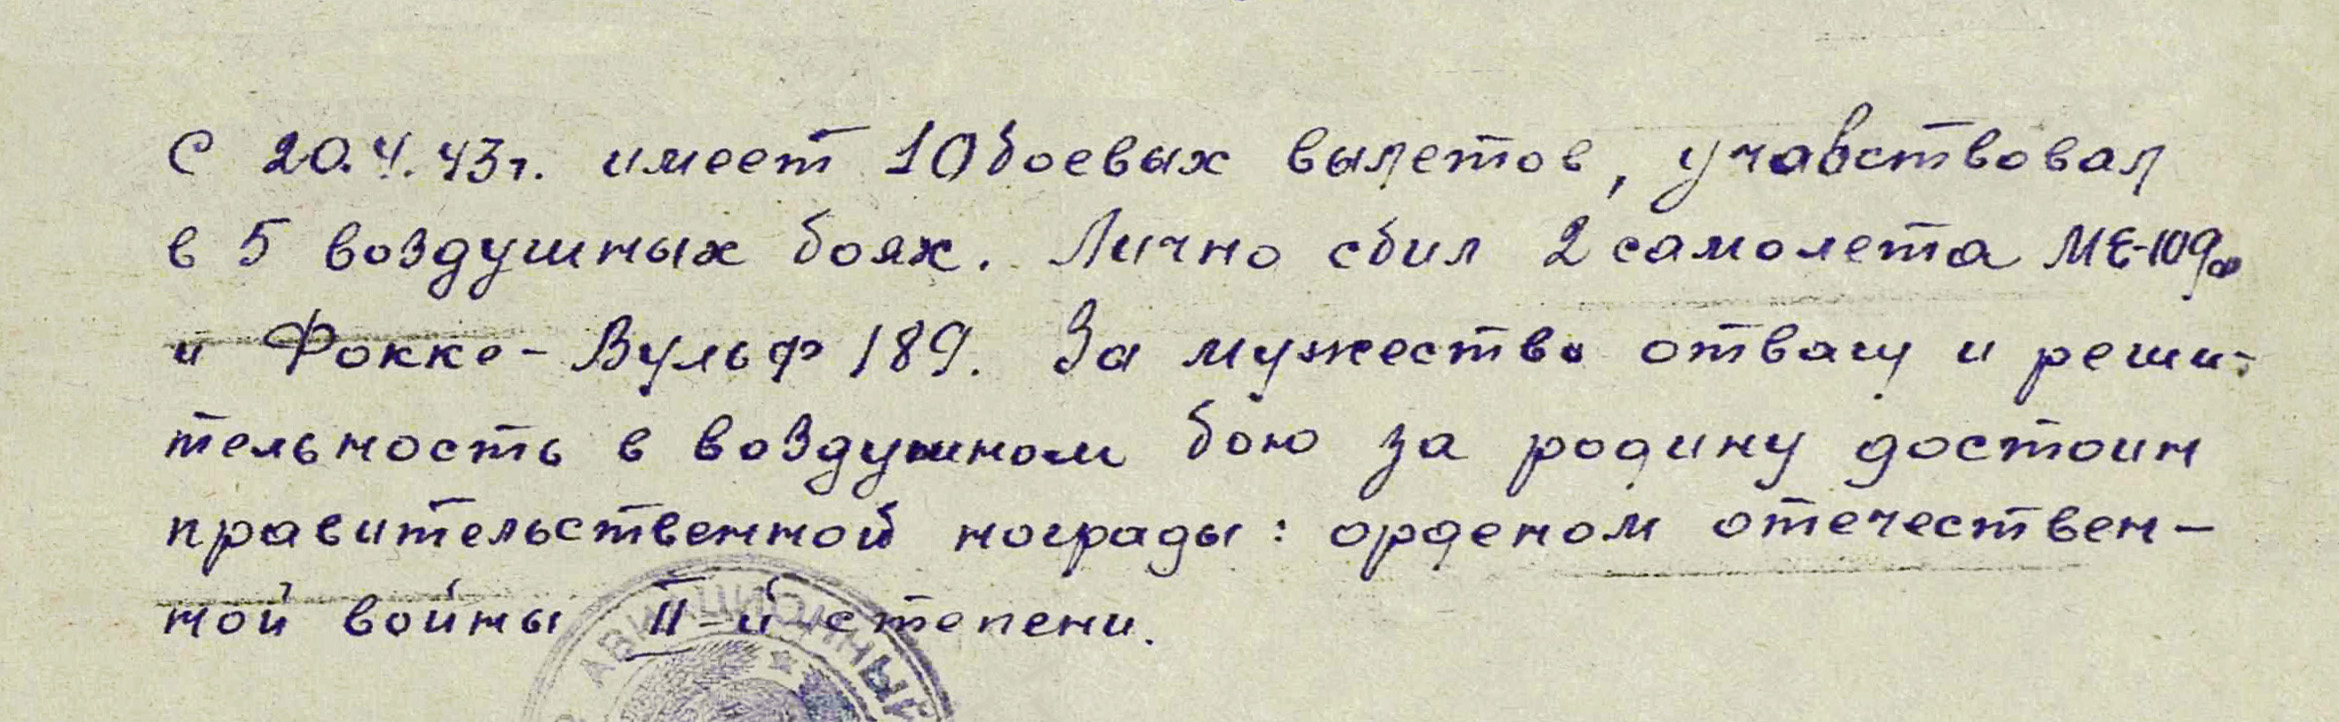 С 20.4.43г. имеет 10 боевых вылетов, учавствовал
в 5 воздушных боях. Лично сбил 2 самолета МЕ-109ф
и Фокке-Вульф 189. За мужество отвагу и реши-
тельность в воздушном бою за родину достоин
правительственной нограды: орденом отечествен-
ной войны II-й степени.
АВИАЦИОННЫЙ